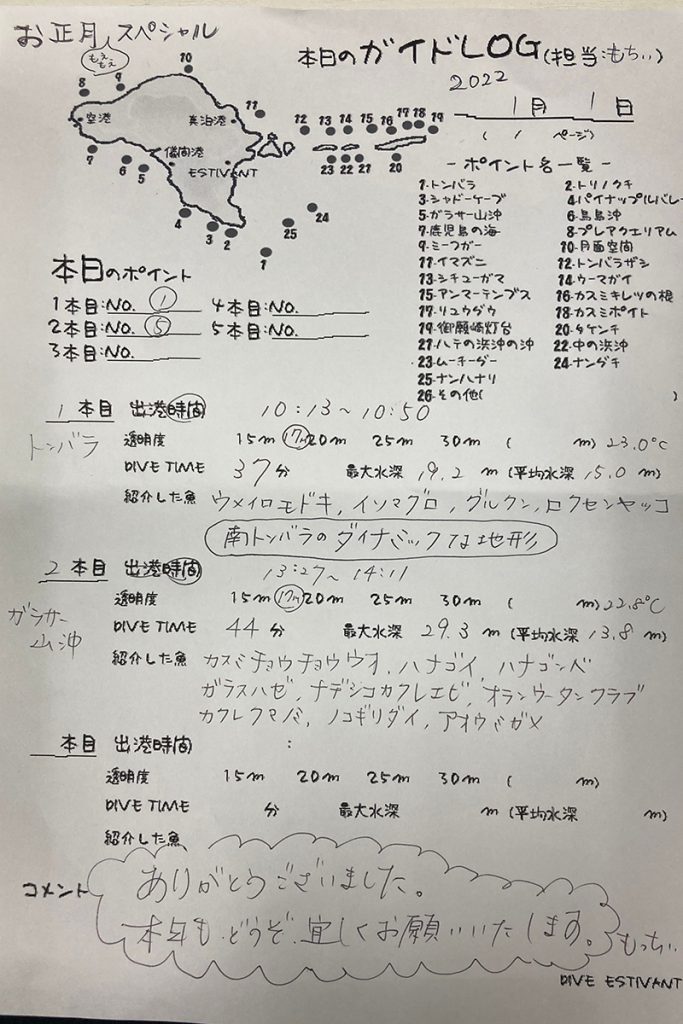 お正月スペシャル
本日のガイドLOG(担当:もちぃ)
2022
1月 1日
( / ページ)
もえもえ
8 9 10 11 12 13 14 15 16 17 18 19
空港 真泊港
儀間港
ESTIVANT
7 6 5 4 3 2 1 25 24 23 22 21 20
- ポイント名一覧 -
1.トンバラ 2.トリノクチ
3.シャドーケーブ 4.パイナップルバレー
5.ガラサー山沖 6.鳥島沖
7.鹿児島の海 8.プレアクエリアム
9.ミーフガー 10.月面空間
11.イマズニ 12.トンバラザシ
13.シチューガマ 14.ウーマガイ
15.アンマーテンプス 16.カスミキレツの根
17.リュウダウ 18.カスミポイト
19.御願崎灯台 20.タケンチ
21.ハテの浜沖の沖 22.中の浜沖
23.ムーチーグー 24.ナンダキ
25.ナンハナリ
26.その他( )
本日のポイント
1本目:NO. 1 4本目:NO.
2本目:NO. 5 5本目:NO.
3本目:NO.
1 本目 出港時間 10:13〜10:50
トンバラ
透明度 15m 17m 20m 25m 30m ( m) 23.0℃
DIVE TIME 37分 最大水深 19.2 m (平均水深 15.0 m)
紹介した魚 ウメイロモドキ, イソマグロ, グルクン, ロクセンヤッコ
南トンバラのダイナミックな地形
2 本目 出港時間 13:27〜14:11
ガラサー山沖
透明度 15m 17m 20m 25m 30m ( m) 22.8℃
DIVE TIME 44 分 最大水深 29.3 m (平均水深 13.8 m)
紹介した魚 カスミチョウチョウウオ, ハナゴイ, ハナゴンベ
ガラスハゼ, ナデシコカクレエビ, オランウータンクラブ
カクレクマノミ, ノコギリダイ, アオウミガメ
本目 出港時間 :
透明度 15m 20m 25m 30m ( m)
DIVE TIME 分 最大水深 m (平均水深 m)
紹介した魚
コメント
ありがとうございました。
本年も、どうぞ、宜しくお願いいたします。 もっちぃ
DIVE ESTIVANT